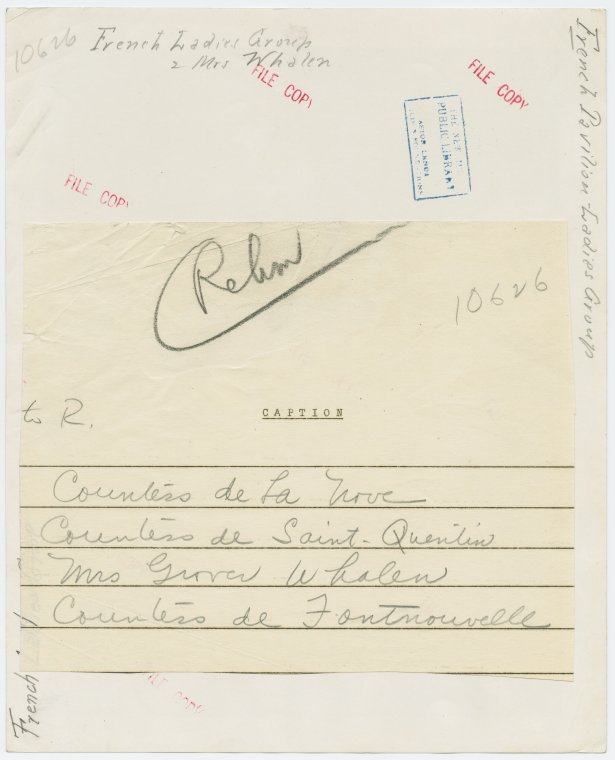 10626 French Ladies Group
2 Mrs Whalen
FILE COPY
FILE COPY
THE NEW
PUBLIC LIBRARY
ASTOR LENOX
FILE COPY
French Pavilion - Ladies Group
Rehm
10626
to R.
CAPTION
Countess de La Nove
Countess de Saint-Quentin
Mrs Grover Whalen
Countess de Fontnouvelle
FILE COPY
French